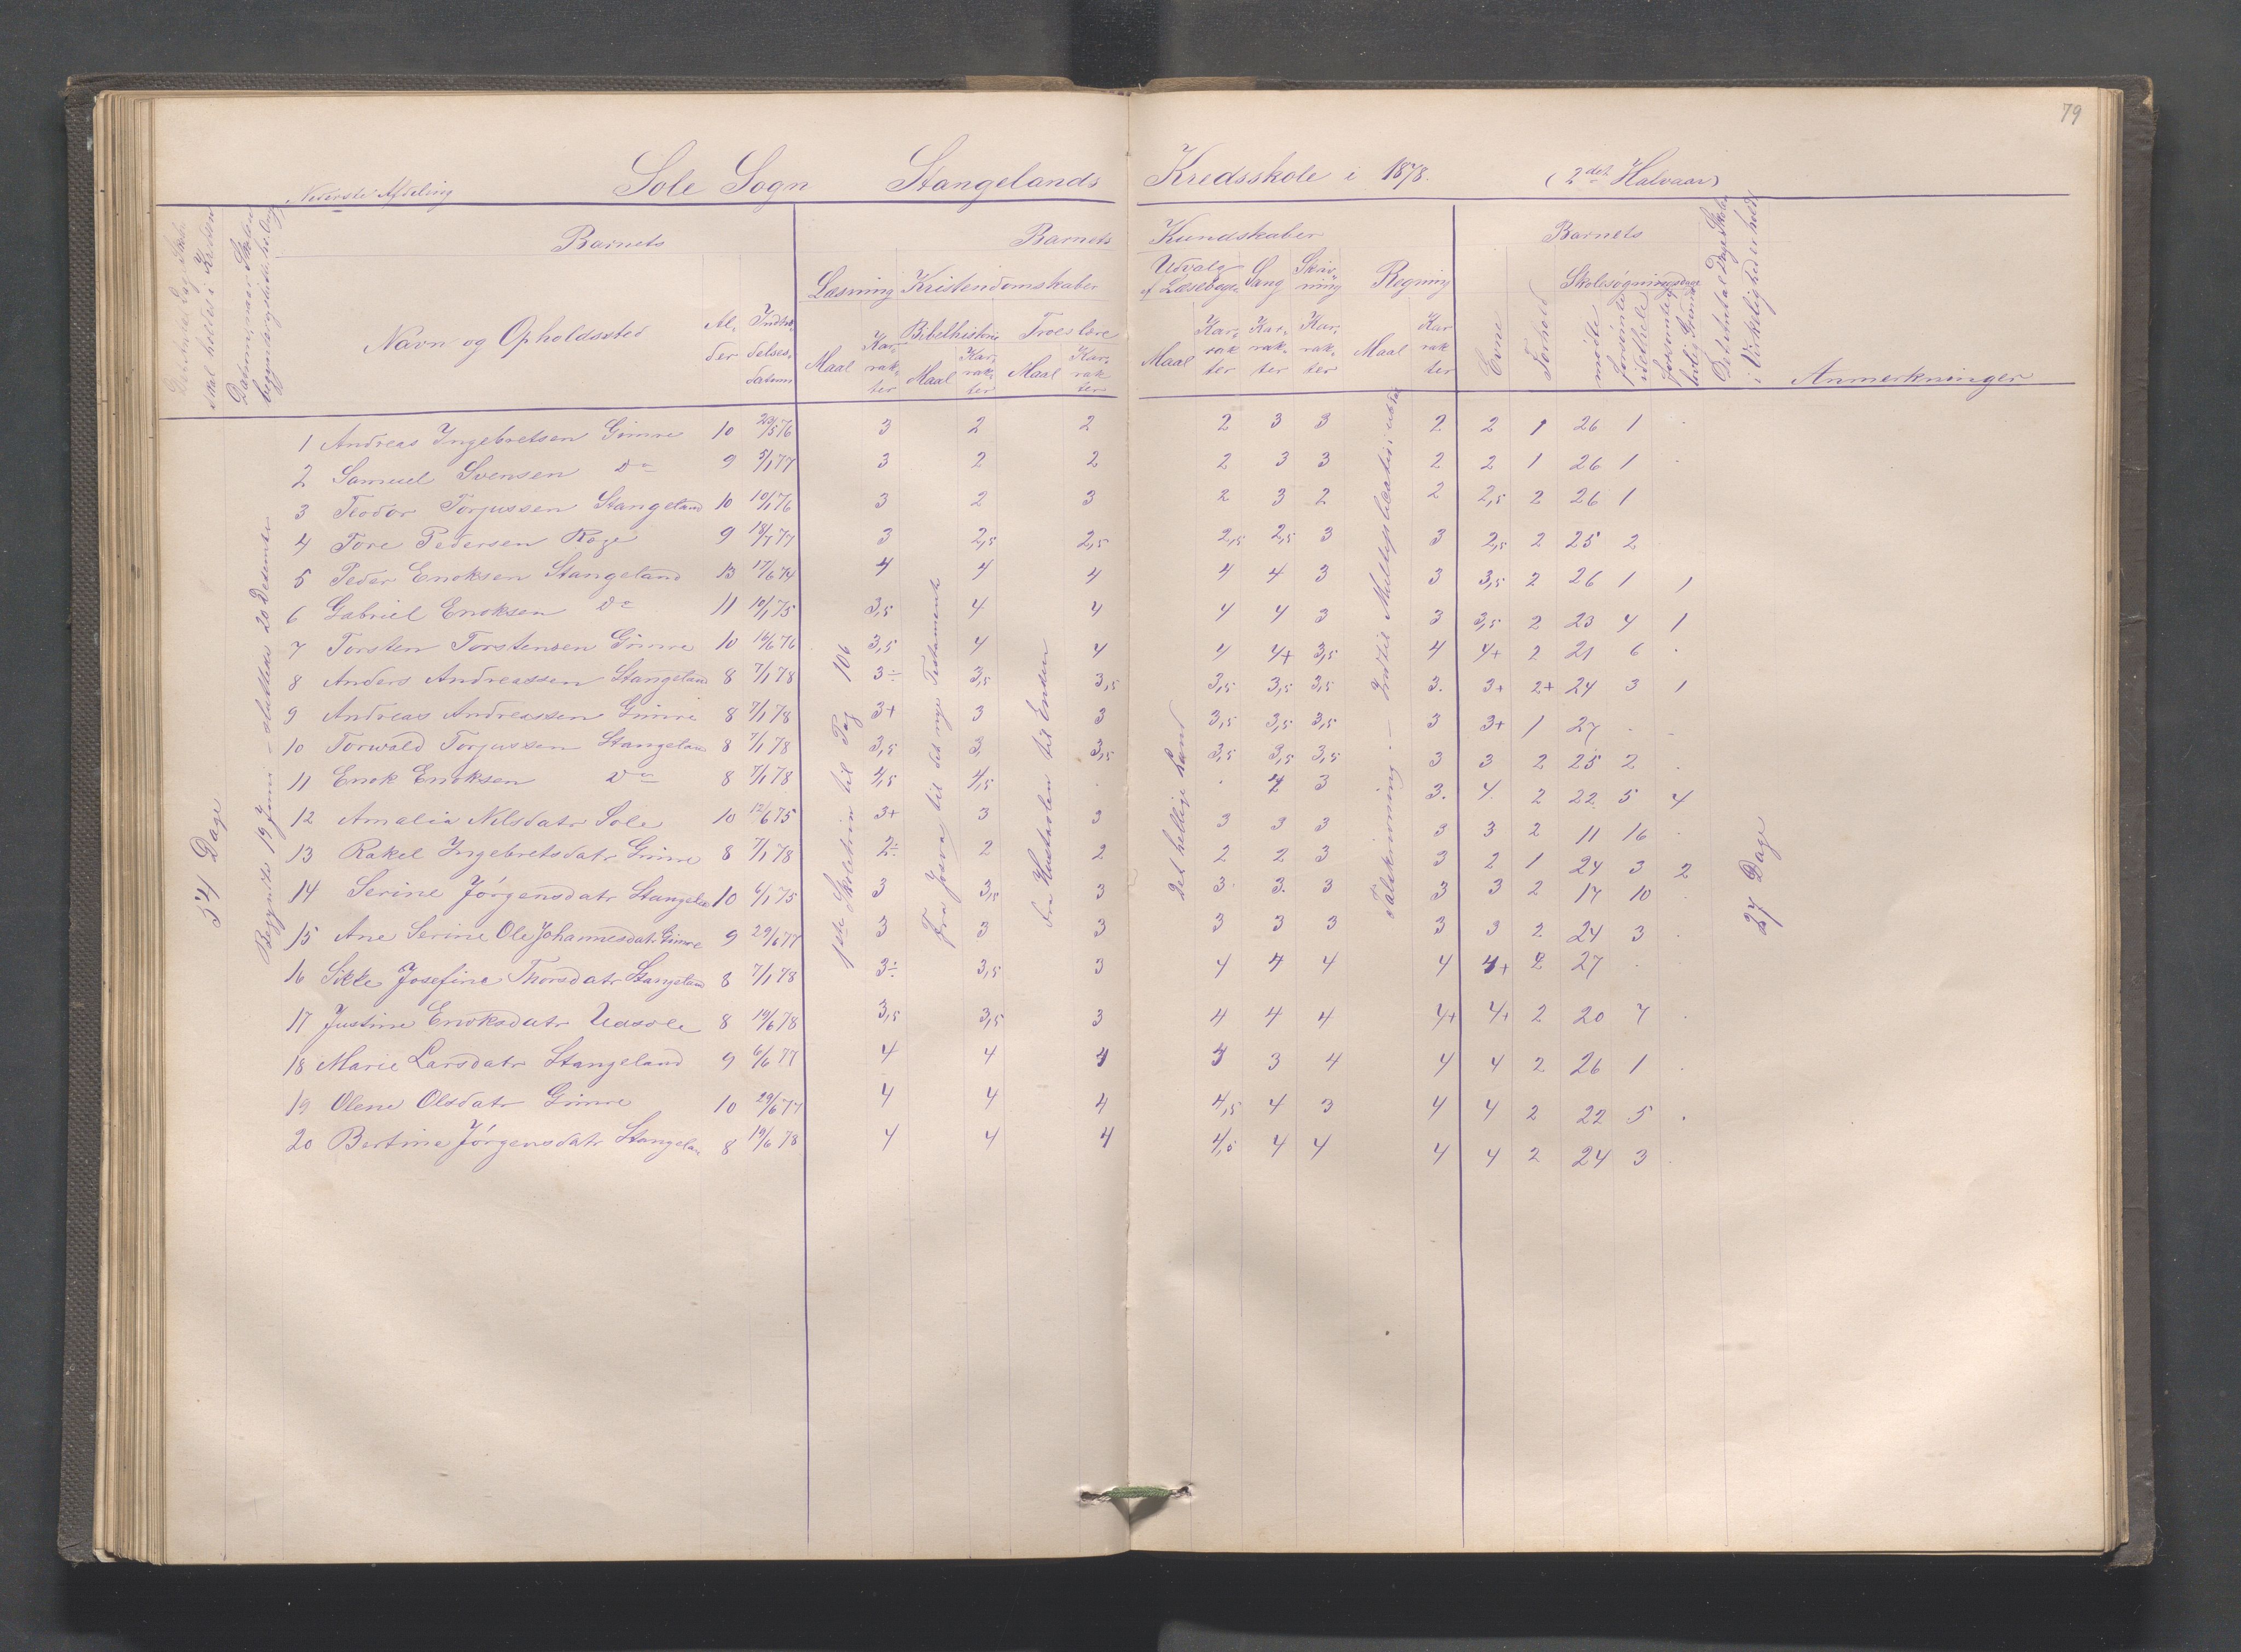 79
Nederste Afdeling Sole Sogn Stangelands Kredsskole i 1878. (2det Halvaar)
Det Antal Dage Skole skal holdes i Kredsen
Datum, naar Skolen begynder og slutter
Barnets Barnets Kundskaber Barnets
Navn og Opholdssted Alder Indtrædelsesdatum
Læsning Kristendomskaber Udvalg af Læsebogen Sang Skrivning Regning
Maal Karrakter Bibelhistorie Maal Karrakter Troeslære Maal Karrakter
Maal Karrakter Karrakter Karrakter Maal Karrakter
Evne Forhold Skolesøgning mödte forsömte idethele forsömte lovlig Grund
Det Antal Dage Skole i Virkeligheden holdt
Anmerkninger
54 Dage
Begyndte 19 Juni - sluttede 20 December
1ste Skoletrin til Pag 106
Fra Josva til det nye Testament
Fra Hustavlen til Enden
Det hellige Land
Talskrivning. - Ind til Multiplikation
27 Dage
1 Andreas Ingebretsen Gimre 10 23/5 76 3 2 2 2 3 3 2 2 1 26 1 .
2 Samuel Svensen do 9 5/1 77 3 2 2 2 3 3 2 2 1 26 1 .
3 Teodor Torjussen Stangeland 10 10/1 76 3 2 3 2 3 2 2 2,5 2 26 1
4 Tore Pedersen Røge 9 18/1 77 3 2,5 2,5 2,5 2,5 3 3 2,5 2 25 2
5 Peder Enoksen Stangeland 13 17/6 74 4 4 4 4 4 3 3 3,5 2 26 1 1
6 Gabriel Enoksen do 11 10/1 75 3,5 4 4 4 4 3 3 3,5 2 23 4 1
7 Torsten Torstensen Gimre 10 16/6 76 3,5 4 4 4 4+ 3,5 4 4+ 2 21 6 .
8 Anders Andreassen Stangeland 8 7/1 78 3÷ 3,5 3,5 3,5 3,5 3,5 3. 3+ 2+ 24 3 1
9 Andreas Andreassen Gimre 8 7/1 78 3+ 3 3 3,5 3,5 3,5 3 3+ 1 27 . .
10 Torwald Torjussen Stangeland 8 7/1 78 3,5 3 3,5 3,5 3,5 3,5 3 3 2 25 2 .
11 Enok Enoksen do 8 7/1 78 4,5 4,5 . . 4 3 3. 4. 2 22 5 4
12 Amalia Nilsdatr Sole 10 12/6 75 3+ 3 3 3 3 3 3 3 2 11 16 .
13 Rakel Ingebretsdatr Gimre 8 7/1 78 2÷ 2 2 2 2 3 3 2 1 24 3 2
14 Serine Jörgensdatr Stangela 10 6/1 75 3 3,5 3 3. 3. 3 3 3 2 17 10 .
15 Ane Serine Ole Johannesdatr Gimre 9 29/6 77 3 3 3 3 3 3 3 3 2 24 3 .
16 Sikke Josefine Thorsdatr Stangelan 8 7/1 78 3÷ 3,5 3 4 4 4 4 4+ 2 27 . .
17 Justine Enoksdatr Uasole 8 19/6 78 3,5 3,5 3 4 4 4 4+ 4+ 2 20 7 .
18 Marie Larsdatr Stangeland 9 6/6 77 4 4 4 4 3 4 4 4 2 26 1 .
19 Olene Olsdatr Gimre 10 29/6 77 4 4 4 4,5 4 3 4 4 2 22 5 .
20 Bertine Jörgensdatr Stangelan 8 19/6 78 4 4 4 4,5 4 4 4 4 2 24 3 .